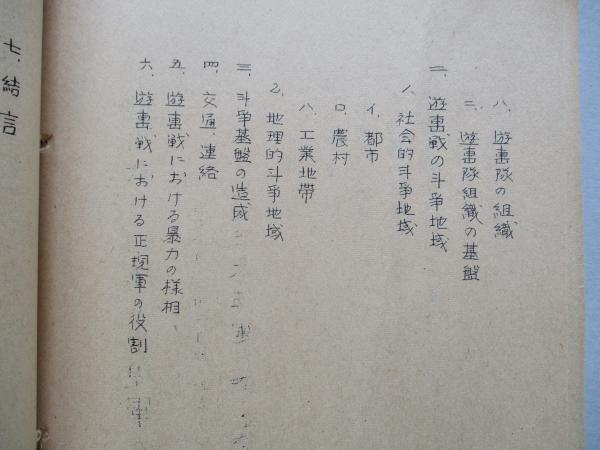 八、遊撃隊の組織
二、遊撃隊組織の基盤
二、遊撃戦の斗争地域
1、社会的斗争地域
イ、都市
ロ、農村
ハ、工業地帯
2、地理的斗争地域
三、斗争基盤の造成
四、交通、連絡
五、遊撃戦における暴力の様相、
六、遊撃戦における正規軍の役割
七、結言